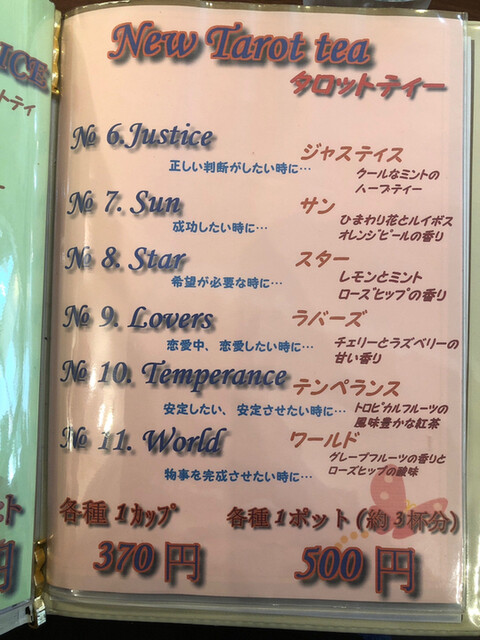 New Tarot tea
タロットティー
№ 6. Justice
ジャスティス
正しい判断がしたい時に…
クールなミントの
ハーブティー
№ 7. Sun
サン
成功したい時に…
ひまわり花とルイボス
オレンジピールの香り
№ 8. Star
スター
希望が必要な時に…
レモンとミント
ローズヒップの香り
№ 9. Lovers
ラバーズ
恋愛中、恋愛したい時に…
チェリーとラズベリーの
甘い香り
№ 10. Temperance
テンペランス
安定したい、安定させたい時に…
トロピカルフルーツの
風味豊かな紅茶
№ 11. World
ワールド
物事を完成させたい時に…
グレープフルーツの香りと
ローズヒップの酸味
各種1カップ
各種1ポット(約3杯分)
370円
500円
ICE